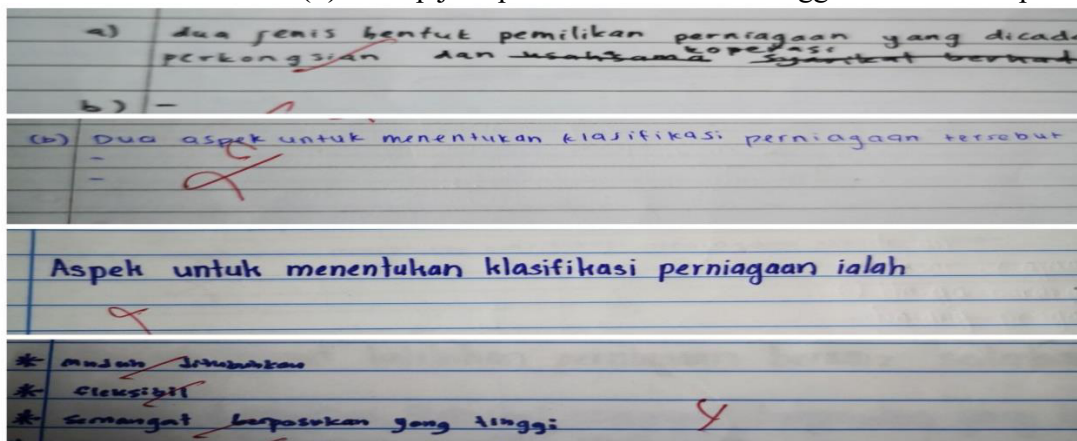 a) dua jenis bentuk pemilikan perniagaan yang dicad
perkongsian dan usahsama koperasi
b) -
(b) Dua aspek untuk menentukan klasifikasi perniagaan tersebut
-
-
Aspek untuk menentukan klasifikasi perniagaan ialah
* mudah ditubuhkan
* fleksibil
* semangat berpasukan yang tinggi